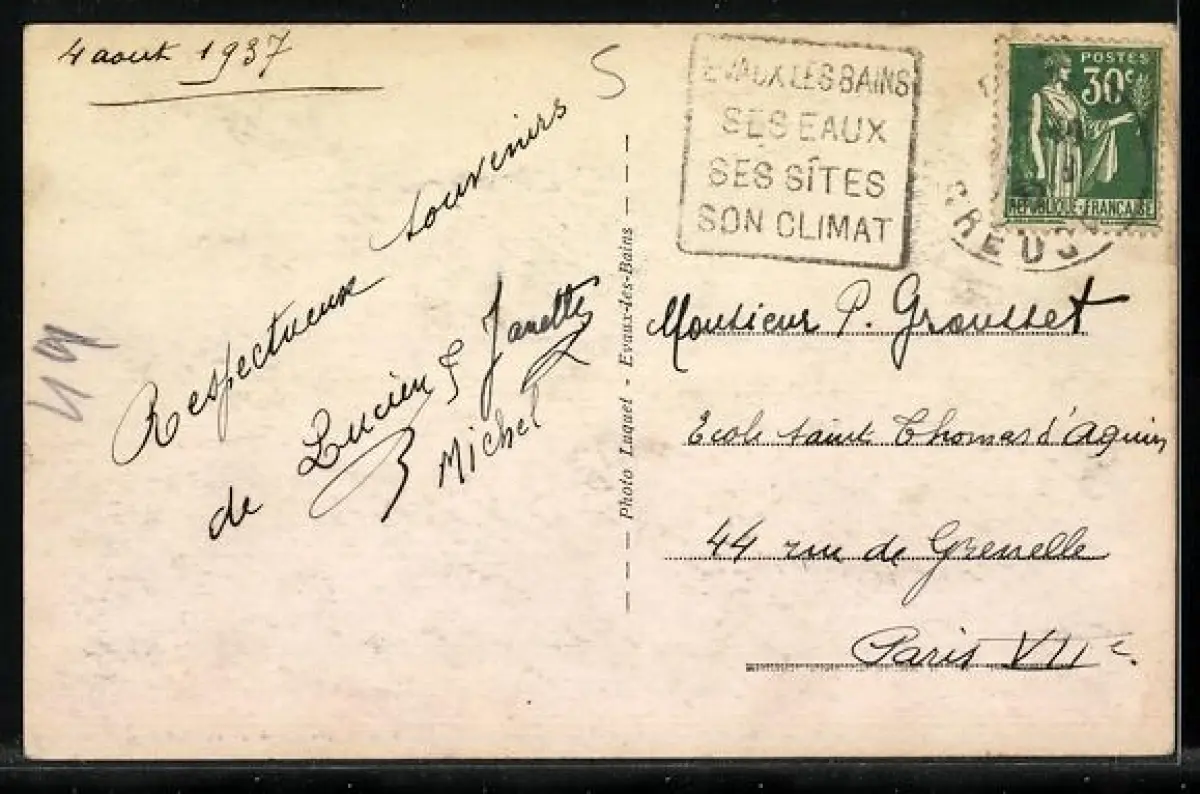 4 aout 1937
5
Respectueux souvenirs
de Lucien & Janette
Michel
49
Photo Luquet - Evaux-les-Bains
EVAUX LES BAINS
SES EAUX
SES SÎTES
SON CLIMAT
POSTES
30c
REPUBLIQUE-FRANCAISE
CREUSE
Monsieur P. Grousset
Ecole saint Thomas d'Aquin
44 rue de Grenelle
Paris VIIe.